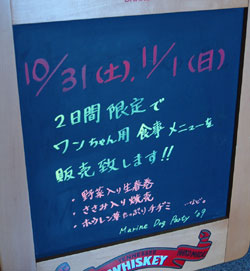 10/31(土), 11/1(日)
2日間限定で
ワンちゃん用食事メニューを
販売致します!!
・野菜入り生春巻
・ささみ入り焼売
・ホウレン草たっぷりチヂミ …など。
Marine Dog Party '09
WHISKEY